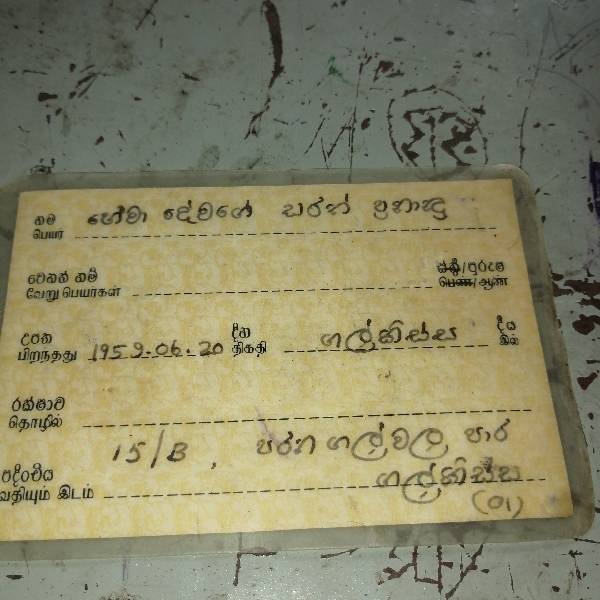 නම හේවා දේවගේ සරත් ප්‍රනාන්දු
பெயர்
වෙනත් නම් ස්ත්‍රී/පුරුෂ
வேறு பெயர்கள் பெண்/ஆண்
උපත 1959.06.20 දින ගල්කිස්ස දීය
பிறந்தது திகதி இல்
රක්ෂාව
தொழில்
15/B, පරන ගල්වල පාර
පදිංචිය ගල්කිස්ස
வதியும் இடம் (01)